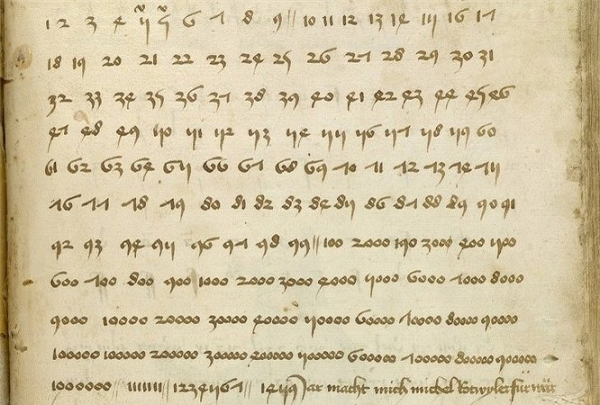 1 2 3 4 5 5 6 7 8 9 // 10 11 12 13 14 15 16 17
18 19 20 21 22 23 24 25 26 27 28 29 30 31
32 33 34 35 36 37 38 39 40 41 42 43 44 45 46
47 48 49 50 51 52 53 54 55 56 57 58 59 60
61 62 63 64 65 66 67 68 69 70 71 72 73 74 75
76 77 78 79 80 81 82 83 84 85 86 87 88 89 90 91
92 93 94 95 96 97 98 99 // 100 3000 400 500
600 700 800 900 1000 2000 3000 4000 5000 6000 7000 8000
9000 10000 20000 30000 40000 50000 60000 70000 80000 90000
100000 100000 200000 300000 400000 500000 600000 700000 800000 900000
1000000 // 1234567 // 1459 Jar macht mich michel